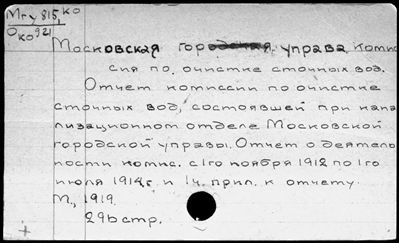 Мгу 815, ко
Око 921
Московская городская управа. Комис
сия по очистке сточных вод.
Отчет комиссии по очистке
сточных вод, состоявшей при кана
лизационном отделе Московской
городской управы. Отчет о деятель
ности комис. с 1го ноября 1912 по 1го
июля 1914г. и 14 прил. к отчету.
М., 1919.
296 стр.